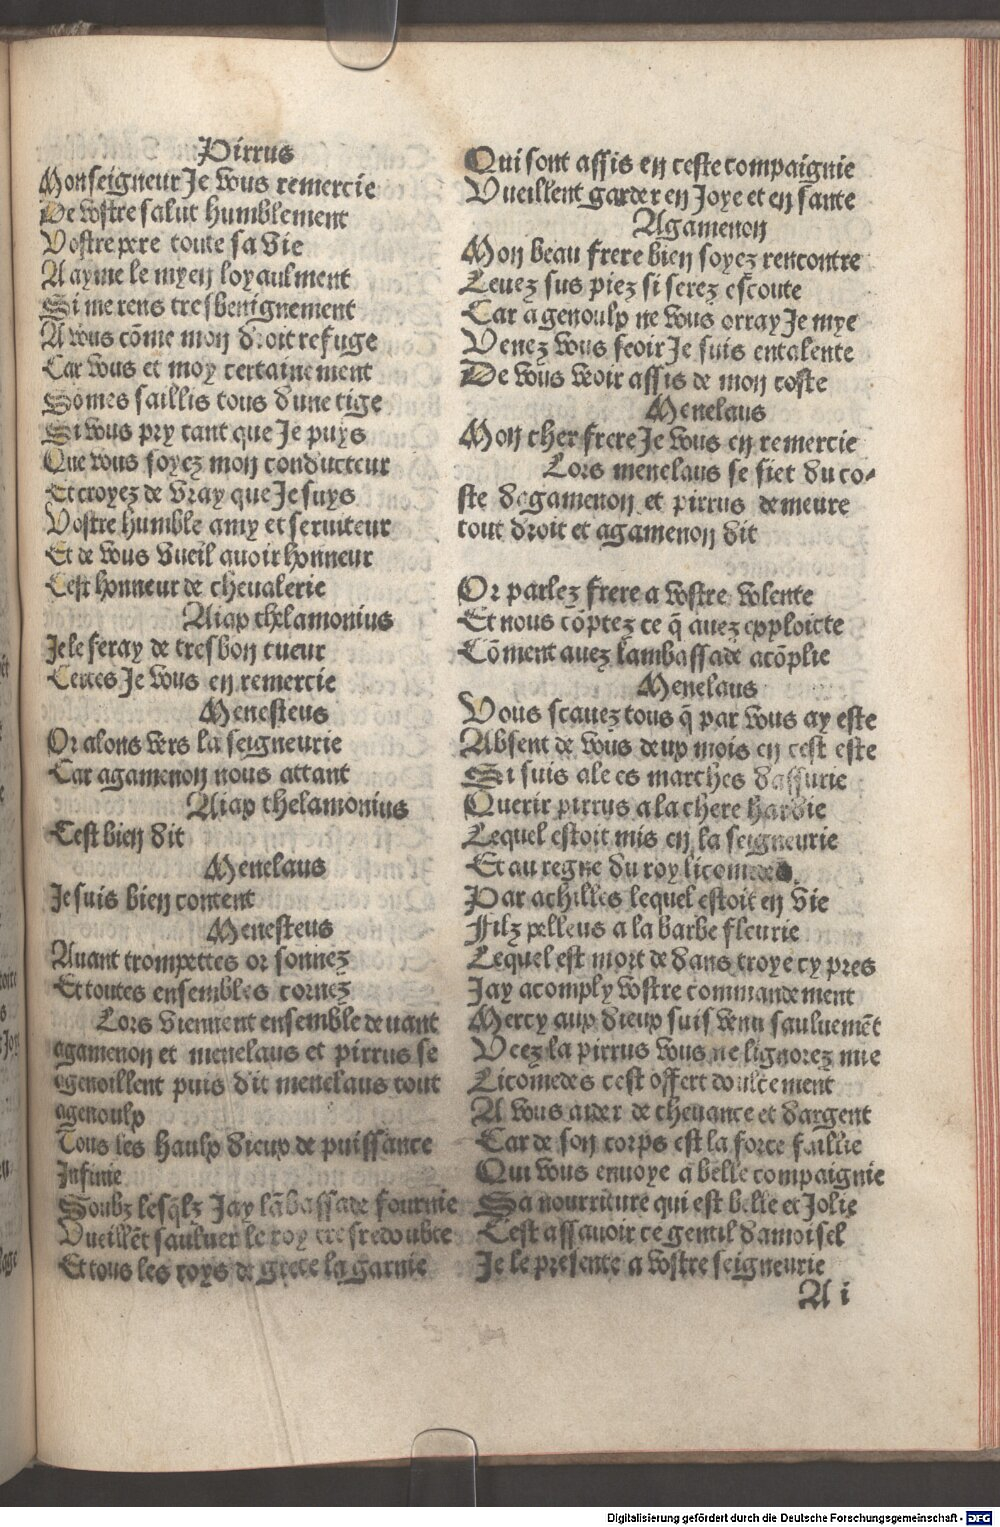 Pirrus
Monseigneur Je vous remercie
De vostre salut humblement
Vostre pere toute sa vie
A ayme le myen loyaulment
Si me rens tresbenignement
A vous cõme mon droit refuge
Car vous et moy certainement
Sõmes saillis tous dune tige
Si vous pry tant que Je puys
Que vous soyez mon conducteur
Et croyez de vray que Je suys
Vostre humble amy et seruiteur
Et de vous vueil auoir honneur
Cest honneur de cheualerie
Aiax thelamonius
Je le feray de tresbon cueur
Certes Je vous en remercie
Menesteus
Or alons vers la seigneurie
Car agamenon nous attant
Aiax thelamonius
Cest bien dit
Menelaus
Je suis bien content
Menesteus
Auant trompettes or sonnez
Et toutes ensembles cornez
Lors viennent ensemble deuant
agamenon et menelaus et pirrus se
agenoillent puis dit menelaus tout
agenoulx
Tous les haulx dieux de puissance
Infinie
Soubz lesq̃lz Jay lãbassade fournie
Vueillẽt sauluer le roy tresredoubte
Et tous les roys de grece la garnie
Qui sont assis en ceste compaignie
Vueillent garder en Joye et en sante
Agamenon
Mon beau frere bien soyez rencontre
Leuez sus piez si serez escoute
Car a genoulx ne vous orray Je mye
Venez vous seoir Je suis entalente
De vous veoir assis de mon coste
Menelaus
Mon cher frere Je vous en remercie
Lors menelaus se siet du co-
ste dagamenon et pirrus demeure
tout droit et agamenon dit
Or parlez frere a vostre volente
Et nous cõptez ce q̃ auez exploicte
Cõment auez lambassade acõplie
Menelaus
Vous scauez tous q̃ par vous ay este
Absent de vous deux mois en cest este
Si suis ale es marches dassurie
Querir pirrus a la chere hardie
Lequel estoit mis en la seigneurie
Et au regne du roy licomedes
Par achilles lequel estoit en vie
Filz pelleus a la barbe fleurie
Lequel est mort dedans troye cy pres
Jay acomply vostre commandement
Mercy aux dieux suis venu sauluemẽt
Veez la pirrus vous ne lignorez mie
Licomedes cest offert doulcement
A vous aider de cheuance et dargent
Car de son corps est la force faillie
Qui vous enuoye a belle compaignie
Sa nourriture qui est belle et Jolie
Cest assauoir ce gentil damoisel
Je le presente a vostre seigneurie
A i
Digitalisierung gefördert durch die Deutsche Forschungsgemeinschaft - DFG